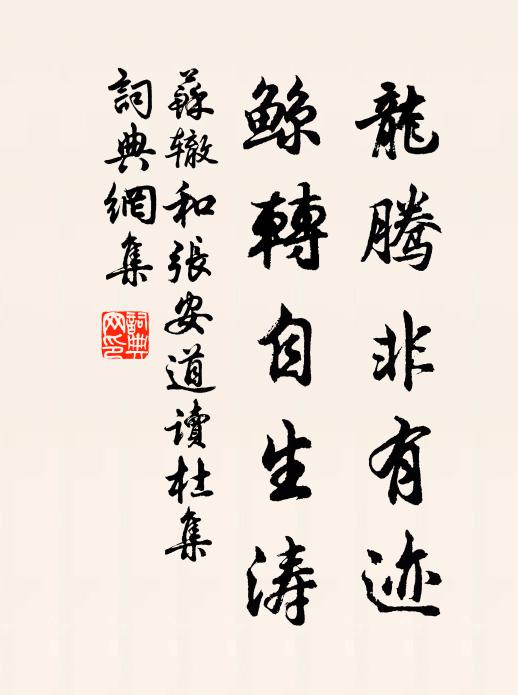 龍騰非有迹
鲸轉自生涛
蘇辙和張安道讀杜集
詞典網集
詞典网印